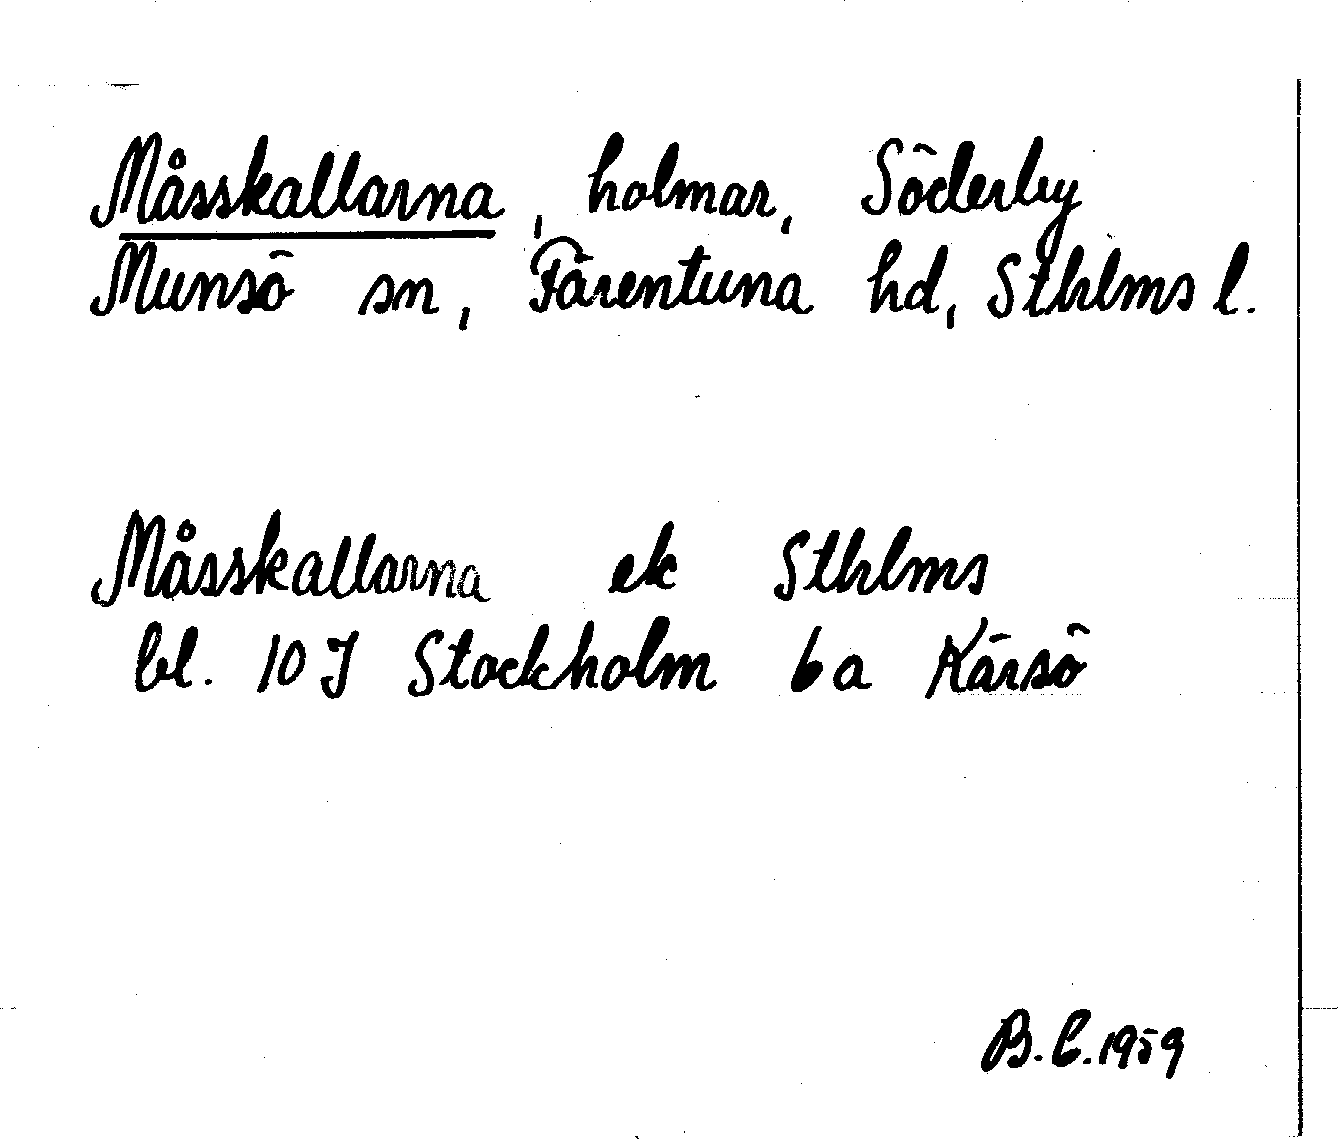 Måsskallarna, holmar, Söderby
Munsö sn, Färentuna hd, Sthlms l.
Måsskallarna ek Sthlms
bl. 10 J Stockholm 6 a Kärsö
B. C. 1959